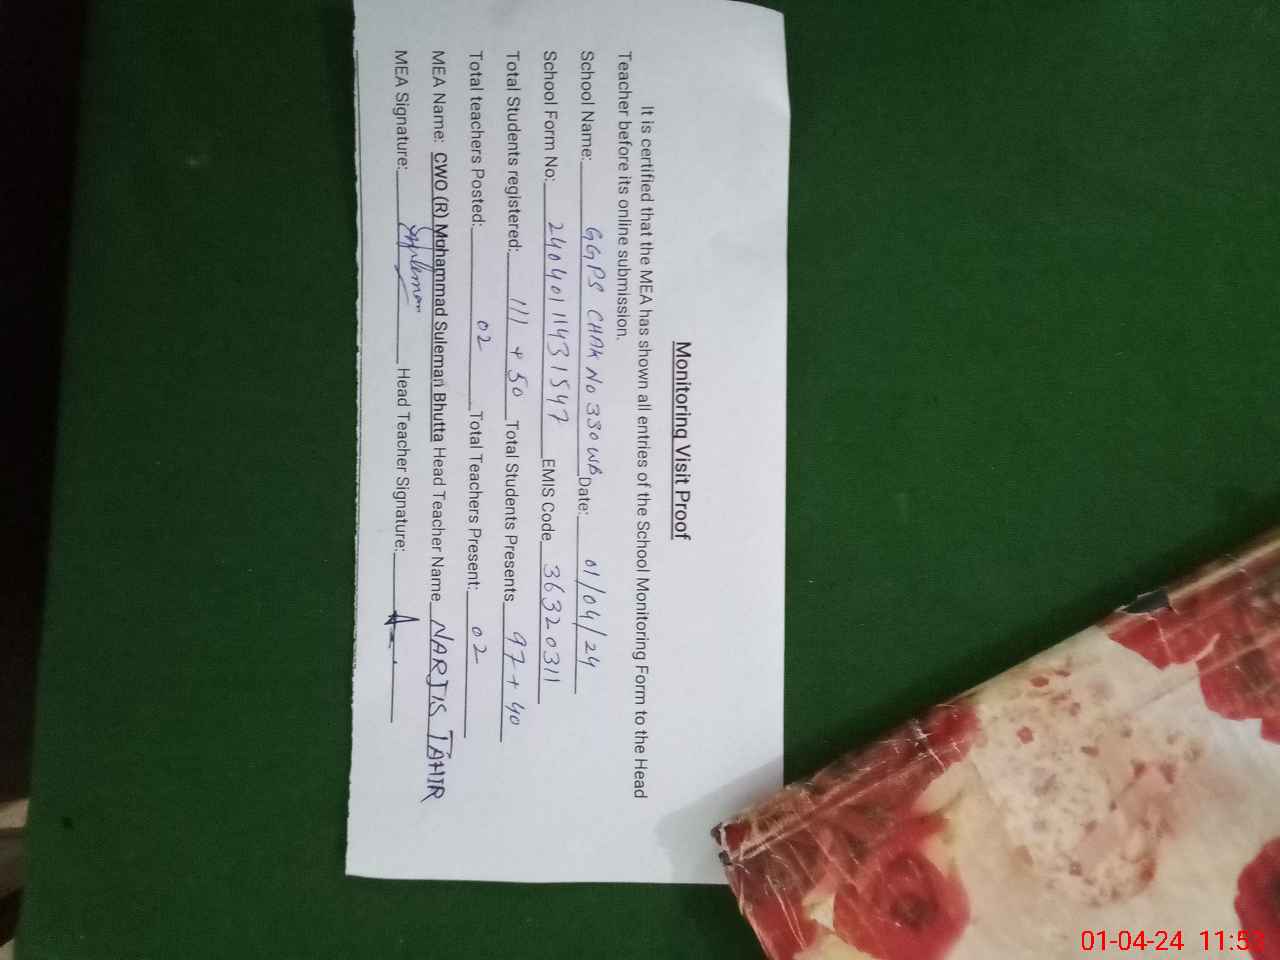 Monitoring Visit Proof
It is certified that the MEA has shown all entries of the School Monitoring Form to the Head
Teacher before its online submission.
School Name: GGPS CHAK No 330 WB Date: 01/04/24
School Form No: 2404011431547 EMIS Code 36320311
Total Students registered: 111 + 50 Total Students Presents 97 + 40
Total teachers Posted: 02 Total Teachers Present: 02
MEA Name: CWO (R) Muhammad Suleman Bhutta Head Teacher Name NARJIS TAHIR
MEA Signature: Suleman Head Teacher Signature:
01-04-24 11:53